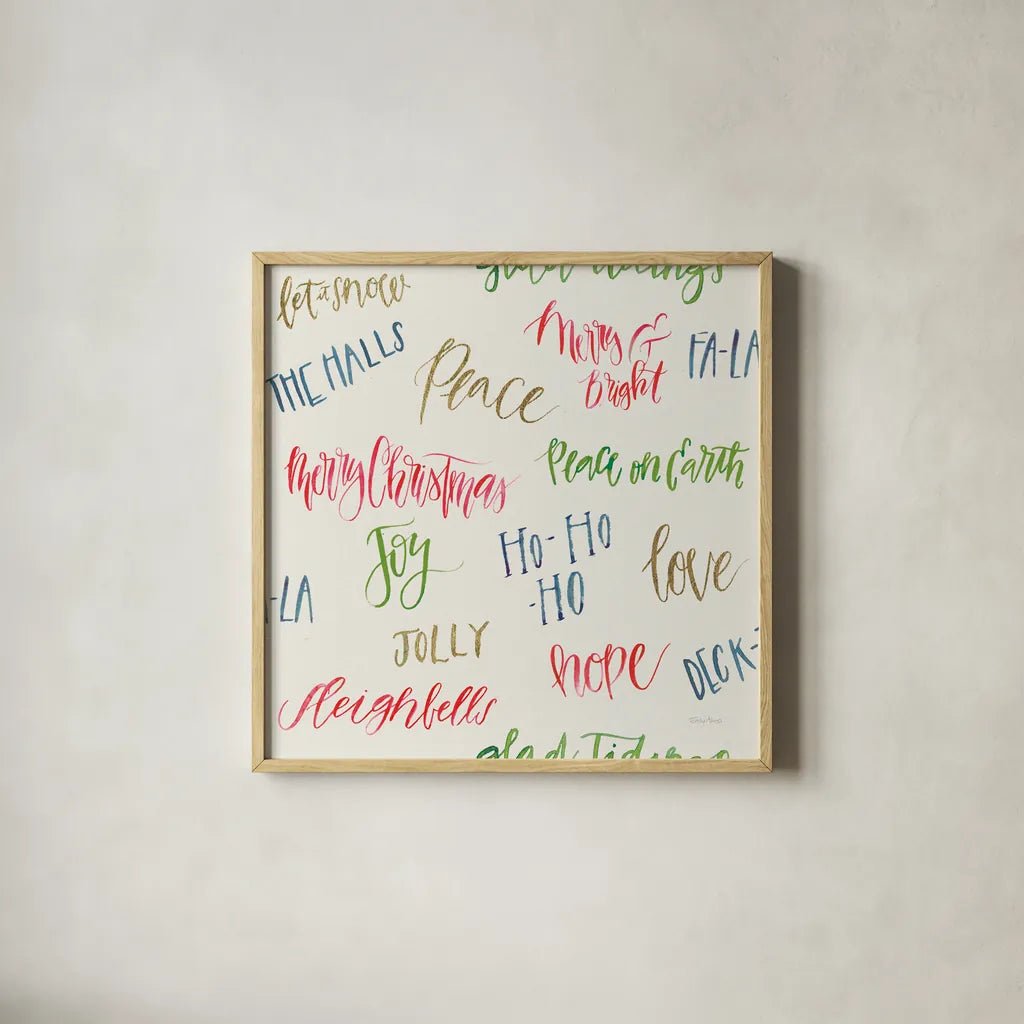 glad tidings
let it snow
Merry &
Bright
THE HALLS
FA-LA
Peace
Merry Christmas
Peace on Earth
Joy
HO-HO
-HO
love
-LA
JOLLY
hope
DECK-
Sleighbells
glad Tidings